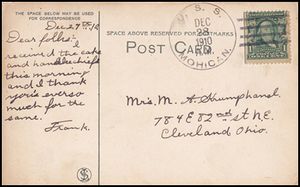 THE SPACE BELOW MAY BE USED
FOR CORRESPONDENCE
Dear folks:
I
received the cake
and handkerchiefs
this morning
and I thank
you's ever so
much for the
same.
Frank.
SPACE ABOVE RESERVED FOR POSTMARK
POST CARD
U. S. S.
DEC
28
1910
MOHICAN.
Mrs. M. A.
784 E 82nd St N.E.
Cleveland Ohio.